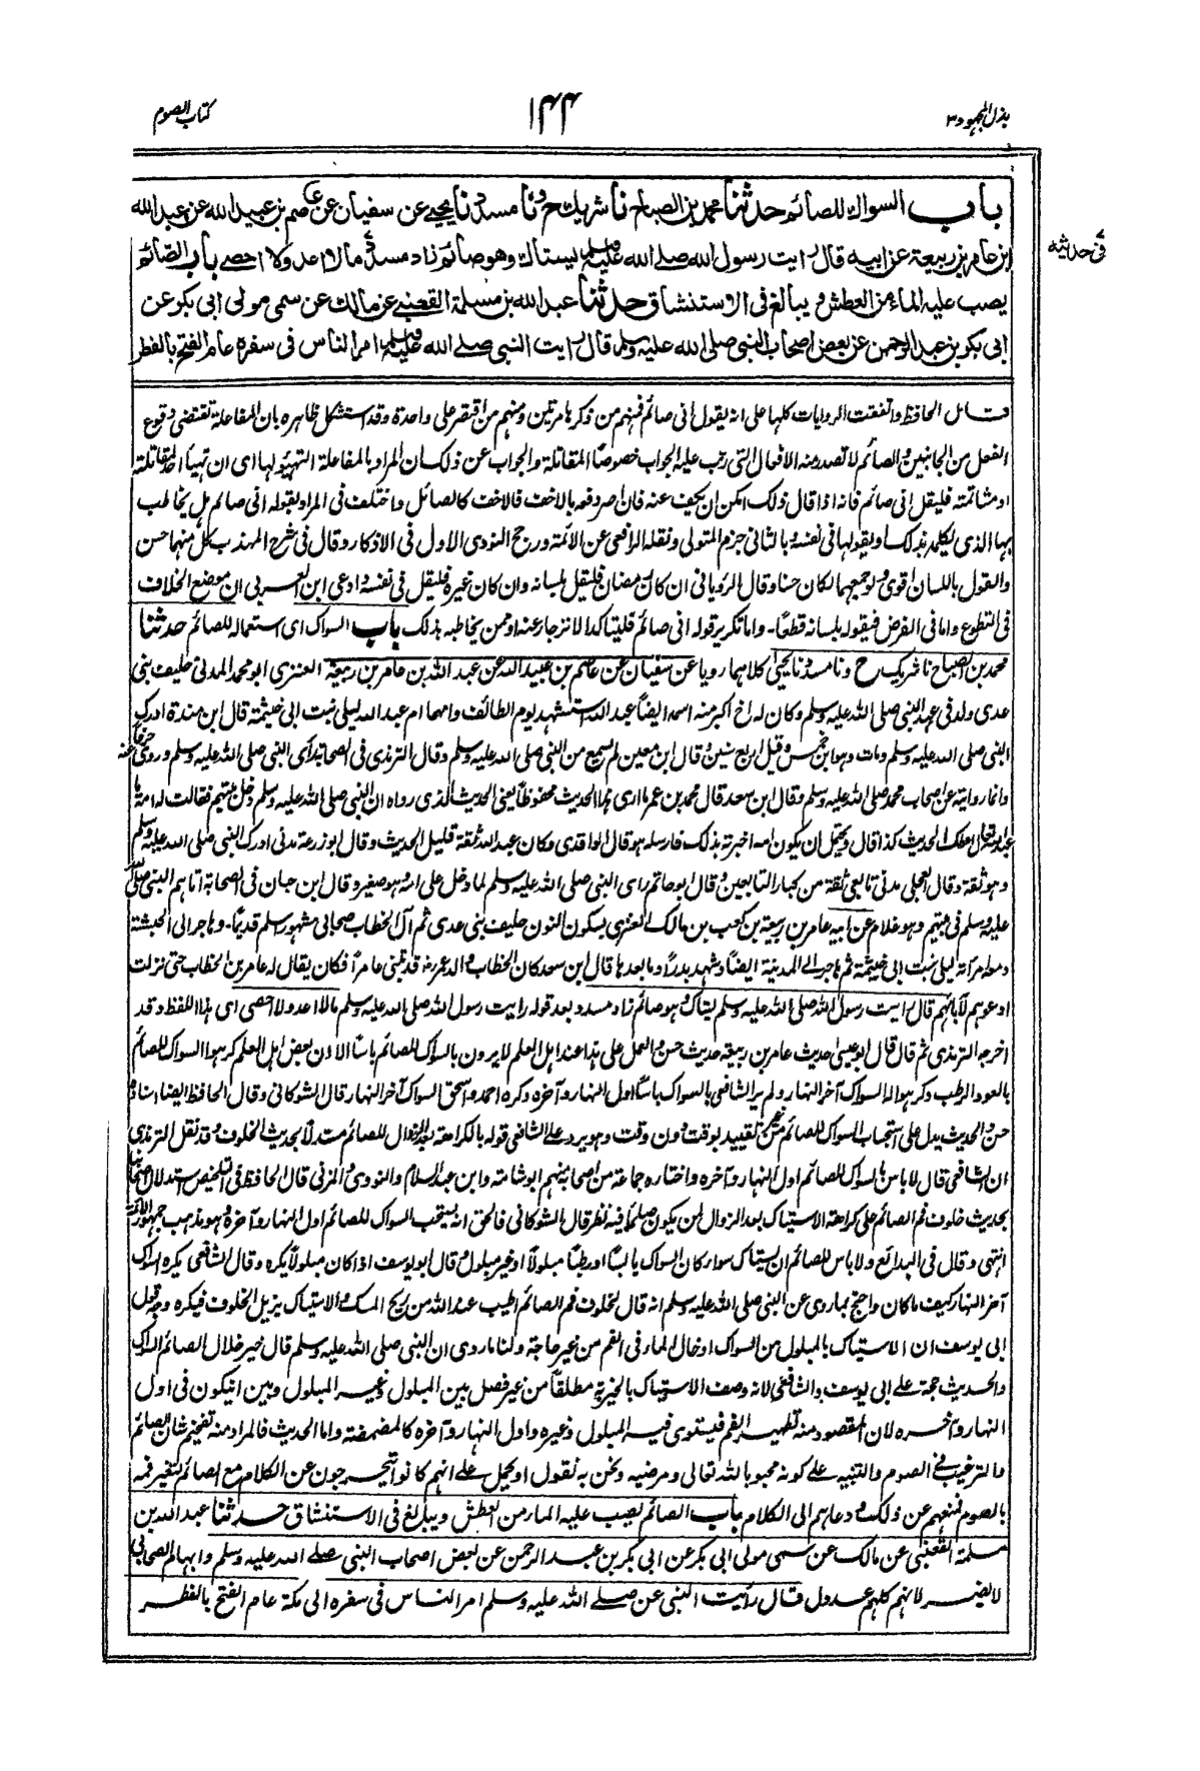 بذل المجهود ٣
١٤٤
كتاب الصوم
باب السواك للصائم حدثنا محمد بن الصباح نا شريك ح ونا مسدد نا يحيى عن سفيان عن عاصم بن عبيد الله عن عبد الله
ابن عامر بن ربيعة عن ابيه قال رايت رسول الله صلى الله عليه وسلم يستاك وهو صائم زاد مسدد مالا اعد ولا احصى باب الصائم
يصب عليه الماء من العطش و يبالغ فى الاستنشاق حدثنا عبد الله بن مسلمة القعنبي عن مالك عن سمى مولى ابى بكر عن
ابى بكر بن عبد الرحمن عن بعض اصحاب النبى صلى الله عليه وسلم قال رايت النبى صلى الله عليه وسلم امر الناس فى سفره عام الفتح بالفطر
فى حديثه
قال الحافظ واتفقت الروايات كلها على انه يقول انى صائم فمنهم من ذكرها مرتين ومنهم من اقتصر على واحدة وقد استشكل ظاهره بان المفاعلة تقتضى وقوع
الفعل من الجانبين والصائم لا تصدر منه الافعال التى رتب عليه الجواب خصوصًا المقاتلة والجواب عن ذلك ان المراد بالمفاعلة التهيؤ لها اى ان تهيأ احد لمقاتلته
او مشاتمته فليقل انى صائم فانه اذا قال ذلك امكن ان يكف عنه فان اصر دفعه بالاخف فالاخف كالصائل واختلف فى المراد بقوله انى صائم هل يخاطب
بها الذى يكلمه بذلك او يقولها فى نفسه وبالثانى جزم المتولى ونقله الرافعى عن الائمة ورجح النووى الاول فى الاذكار وقال فى شرح المهذب كل منهما حسن
والقول باللسان اقوى ولو جمعهما لكان حسنا وقال الرويانى ان كان رمضان فليقل بلسانه وان كان غيره فليقل فى نفسه وادعى ابن العربى ان موضع الخلاف
فى التطوع واما فى الفرض فيقوله بلسانه قطعًا۔ واما تكرير قوله انى صائم فليتاكد الانزجار عنه او ممن يخاطبه بذلك باب السواك اى استعماله للصائم حدثنا
محمد بن الصباح نا شريك ح ونا مسدد نا يحيى كلاهما رويا عن سفيان عن عاصم بن عبيد الله عن عبد الله بن عامر بن ربيعة العنزى ابو محمد المدنى حليف بنى
عدى ولد فى عهد النبى صلى الله عليه وسلم وكان له اخ اكبر منه اسمه ايضًا عبد الله استشهد يوم الطائف وامهما ام عبد الله ليلى بنت ابى خيثمة قال ابن مندة ادرك
النبى صلى الله عليه وسلم ومات وهو ابن خمس وقيل اربع سنين وقال ابن معين لم يسمع من النبى صلى الله عليه وسلم وقال الترمذى فى الصحابة رأى النبى صلى الله عليه وسلم وروى عنه حرفا
وانما روايته عن اصحاب محمد صلى الله عليه وسلم وقال ابن سعد قال محمد بن عمر ما ارى هذا الحديث محفوظًا يعنى الحديث الذى رواه ان النبى صلى الله عليه وسلم دخل بيتهم فقالت له امه يا
عبد الله تعال اعطك الحديث كذا قال ويحتمل ان يكون امه اخبرته بذلك فارسله هو قال الواقدى وكان عبد الله ثقة قليل الحديث وقال ابو زرعة مدنى ادرك النبى صلى الله عليه وسلم
وهو ثقة وقال العجلى مدنى تابعى ثقة من كبار التابعين وقال ابو حاتم راى النبى صلى الله عليه وسلم لما دخل على امه وهو صغير وقال ابن حبان فى الصحابة اتاهم النبى صلى الله
عليه وسلم فى بيتهم وهو غلام عن ابيه عامر بن ربيعة بن كعب بن مالك العنزى بسكون النون حليف بنى عدى ثم آل الخطاب صحابى مشهور اسلم قديمًا۔ وهاجر الى الحبشة
ومعه امرأته ليلى بنت ابى خيثمة ثم هاجر الى المدينة ايضًا وشهد بدرًا وما بعدها قال ابن سعد كان الخطاب والد عمر قد تبنى عامرًا فكان يقال له عامر بن الخطاب حتى نزلت
ادعوهم لآبائهم قال رايت رسول الله صلى الله عليه وسلم يستاك وهو صائم زاد مسدد بعد قوله رايت رسول الله صلى الله عليه وسلم مالا اعد ولا احصى اى هذا اللفظ وقد
اخرجه الترمذى ثم قال قال ابو عيسى حديث عامر بن ربيعة حديث حسن والعمل على هذا عند اهل العلم لا يرون بالسواك للصائم باسًا الا ان بعض اهل العلم كرهوا السواك للصائم
بالعود الرطب وكرهوا له السواك آخر النهار ولم ير الشافعى بالسواك باسًا اول النهار وآخره وكره احمد واسحق السواك آخر النهار قال الشوكانى وقال الحافظ ايضا اسناده
حسن والحديث يدل على استحباب السواك للصائم من غير تقييد بوقت دون وقت وهو يرد على الشافعى قوله بالكراهة بعد الزوال للصائم مستدلًا بحديث الخلوف وقد نقل الترمذى
ان الشافعى قال لا باس بالسواك للصائم اول النهار وآخره واختاره جماعة من اصحابه منهم ابو شامة وابن عبد السلام والنووى والمزنى قال الحافظ فى التلخيص استدلال اصحابنا
بحديث خلوف فم الصائم على كراهة الاستياك بعد الزوال لمن يكون صائمًا فيه نظر قال الشوكانى فالحق انه يستحب السواك للصائم اول النهار وآخره وهو مذهب جمهور الائمة
انتهى وقال فى البدائع ولا باس للصائم ان يستاك سواء كان السواك يابسًا او رطبًا مبلولًا او غير مبلول وقال ابو يوسف اذا كان مبلولًا يكره وقال الشافعى يكره السواك
آخر النهار كيف ما كان واحتج بما روى عن النبى صلى الله عليه وسلم انه قال لخلوف فم الصائم اطيب عند الله من ريح المسك والاستياك يزيل الخلوف فيكره وجه قول
ابى يوسف ان الاستياك بالمبلول من السواك ادخال الماء فى الفم من غير حاجة ولنا ما روى ان النبى صلى الله عليه وسلم قال خير خلال الصائم السواك
والحديث حجة على ابى يوسف والشافعى لانه وصف الاستياك بالخيرية مطلقًا من غير فصل بين المبلول وغير المبلول وبين ان يكون فى اول
النهار وآخره لان المقصود منه تطهير الفم فيستوى فيه المبلول وغيره واول النهار وآخره كالمضمضة واما الحديث فالمراد منه تفخيم شان الصائم
والترغيب فى الصوم والتنبيه على كونه محبوبا لله تعالى ومرضيه ونحن به نقول او يحمل على انهم كانوا يتحرجون عن الكلام مع الصائم لتغير فمه
بالصوم فمنعهم عن ذلك ودعاهم الى الكلام باب الصائم يصب عليه الماء من العطش ويبالغ فى الاستنشاق حدثنا عبد الله بن
مسلمة القعنبى عن مالك عن سمى مولى ابى بكر عن ابى بكر بن عبد الرحمن عن بعض اصحاب النبى صلى الله عليه وسلم وابهام الصحابى
لا يضر لانهم كلهم عدول قال رأيت النبى عن صلى الله عليه وسلم امر الناس فى سفره الى مكة عام الفتح بالفطر